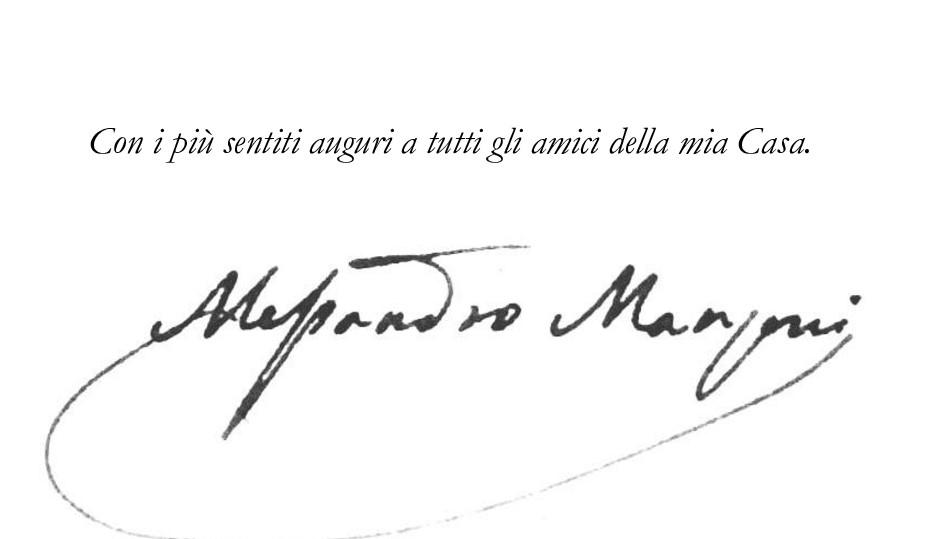 Con i più sentiti auguri a tutti gli amici della mia Casa.
Alessandro Manzoni